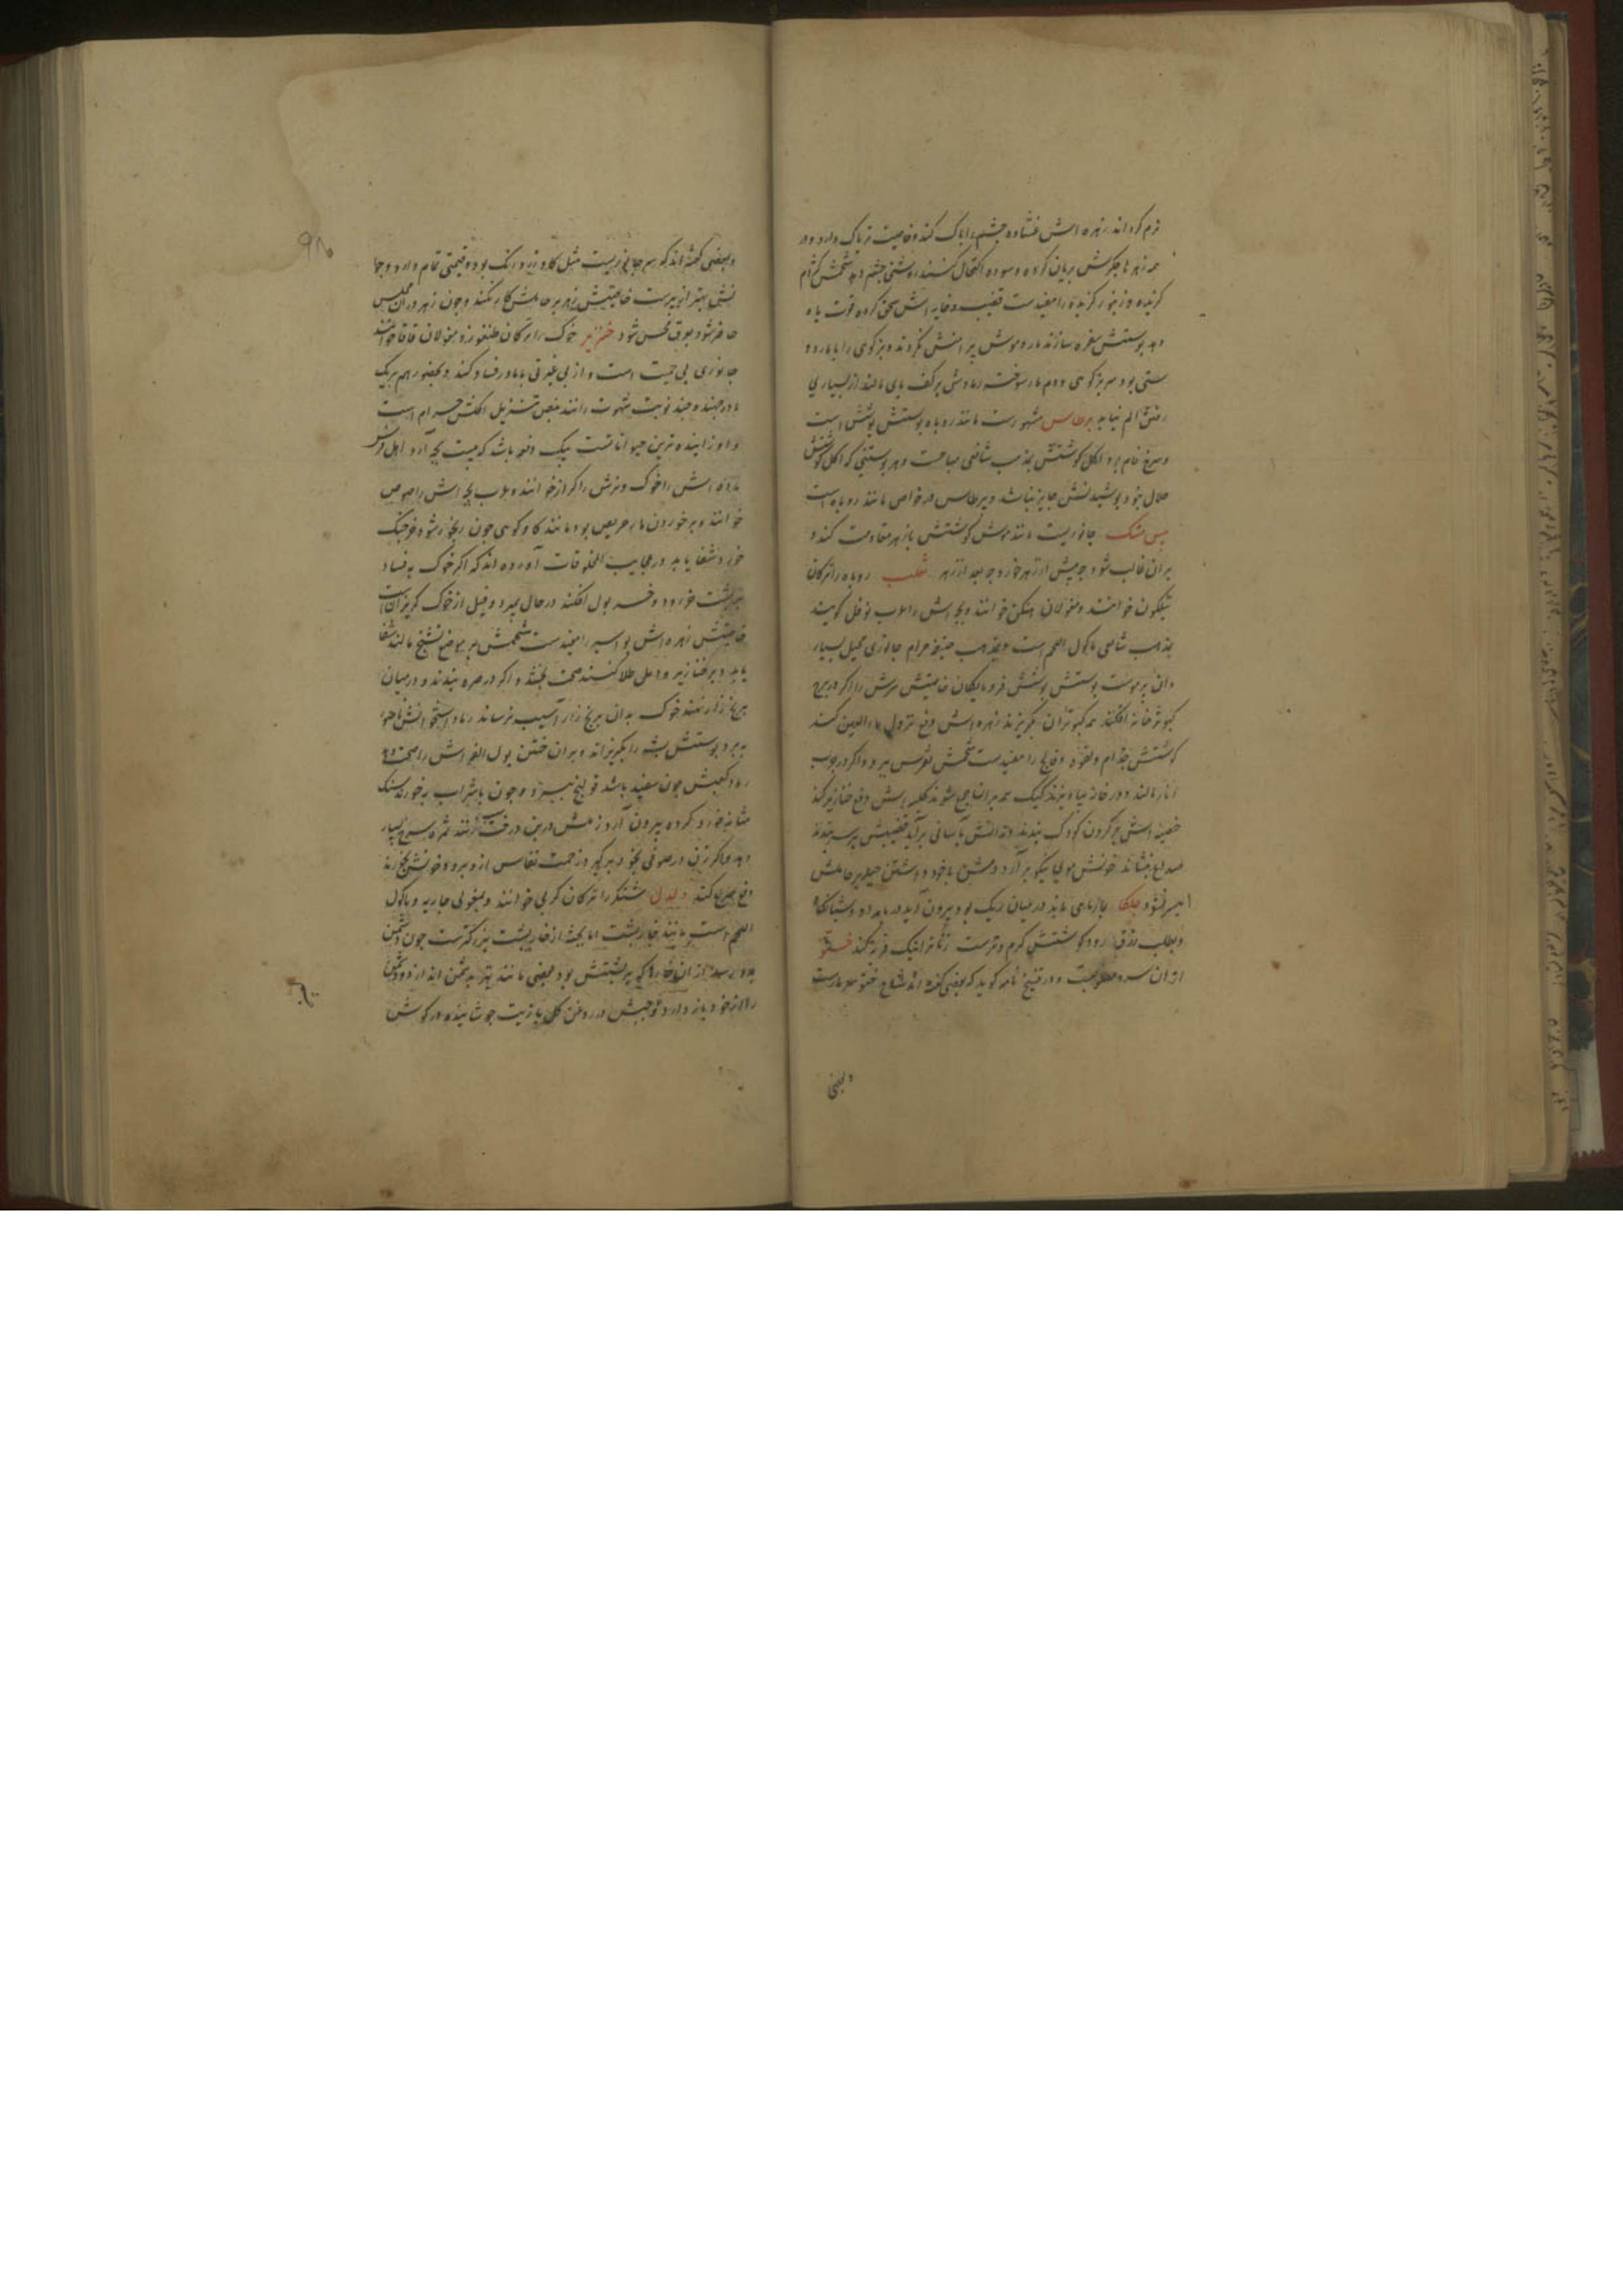 نرم کرداند زهره اش غشاوه چشم را پاک کند و خاصیت تریاک دارد و در
همه زهرها جکرش بریان کرده و سوده اکتحال کنند روشنی چشم دهد شحمش کژدم
کزیده و زنبور کزیده را مفیدست قضیب و خایه اش سحق کرده قوت باه
دهد پوستش سفره سازند مار و موش پیرامنش نکردند و بزکوهی را با مار دو
ستی بود سر بزکوهی و دم مار سوخته رمادش بر کف پای مالند از بسیاری
رفتن الم نیابد برطاس مشهورست مانند روباه پوستش پوشش است
و سرخ فام بود اکل کوشتش بمذهب شافعی مباحست و هر پوستینی که اکل کوشتش
حلال نبود پوشیدنش جایز نباشد و برطاس در خواص مانند روباه است
بیس مشک جانوریست مانند موش کوشتش با زهر مقاومت کند و
بران غالب شود چه پیش از زهر خورد و چه بعد از زهر ثعلب روباه را ترکان
تیلکون خوانند و مغولان خوانند و بچه اش را عرب نوفل کویند
بمذهب شافعی ماکول اللحم است و بمذهب حنیفه حرام جانوری محیل بسیار
دان پر موست پوستش پوشش فرومایکان خاصیتش سرش را اکر در برج
کبوترخانه افکنند همه کبوتران بکریزند زهره اش دفع نزول ماء العین کند
کوشتش جذام و لقوه و فالج را مفیدست شحمش نقرس ببرد و اکر در چوب
انار مالند و در خانه بیاویزند کیک همه بر آنجا جمع شوند کلیه اش دفع خنازیر کند
خصیه اش بر کردن کودک بندند دندانش بآسانی برآید قضیبش بر سر بندند
صداع بنشاند خونش موی نیکو برآرد دمش با خود داشتن حیله بر حاملش
اثر نشود جلکا جانوریست در میان ریک بود بیرون آید در بامداد و شبانکاه
و بطلب رزق رود کوشتش کرم و ترست زنانرا نیک فربه کند ختو
او آن سر معلومست و در تنسخ نامه کوید که بعضی کفته اند شاخ ختو سر مارست
و بعضی
و بعضی کفته اند که سر جانوریست مثل کاو زرد رنک بود و قیمتی تمام دارد و جوا
نش بهتر از پیرست خاصیتش زهر بر حاملش کار نکند و چون زهر در آن مجلس
حاضر شود بعرق محسوس شود خنزیر خوک را ترکان طنغوز و مغولان قاقا خوانند
جانوری بی حمیت است و از بی غیرتی با مادر فساد کند و بحضور هم بر یک
ماده جهند و چند نوبت شهوت رانند بنص تنزیل اکلش حرام است
و او زاینده ترین حیواناتست بیک دفعه باشد که بیست بچه آرد اهل فرس
ماده اش را خوک و نرش را کراز خوانند و عرب بچه اش را خنوص
خوانند و بر خوردن مار حریص بود مانند کاو کوهی چون رنجور شود خرچنک
خورد شفا یابد در عجایب المخلوقات آورده اند که اکر خوک به فساد
بر پشت خر رود و خر بول افکند در حال بمیرد و فیل از خوک کریزانست
خاصیتش زهره اش بواسیر را مفیدست شحمش بر موضع تشنج مالند شفا
یابد و بر خنازیر و دمل طلا کنند صحت بخشد و اکر در صره بندند و در میان
برنج زار نهند خوک بدان برنج زار آسیب نرساند رماد استخوانش ناصور
ببرد پوستش پشه را بکریزاند و بران خفتن بول الفراش را صحت دهد
رماد کعبش چون سفید باشد قولنج ببرد و چون با شراب بخورند سنک
مثانه خورد کرده بیرون آرد زبلش در بن درخت سیب کنند ثمره سرخ بسیار
دهد و اکر زن در صوفی بخود برکیرد زحمت نفاس ازو برود خونش بخورند
دفع صرع کند دلدل شتکر را ترکان کربی خوانند و بمغولی جاریه و ماکول
اللحم است مانند خارپشت اما بجثه از خارپشت بزرکترست چون دشمن
بدو رسد از آن خارها که بر پشتش بود بعضی مانند تیر بدشمن اندازد و دشمن
را از خود باز دارد خاصیتش در روغن کل یا زیت جوشانیده در کوش